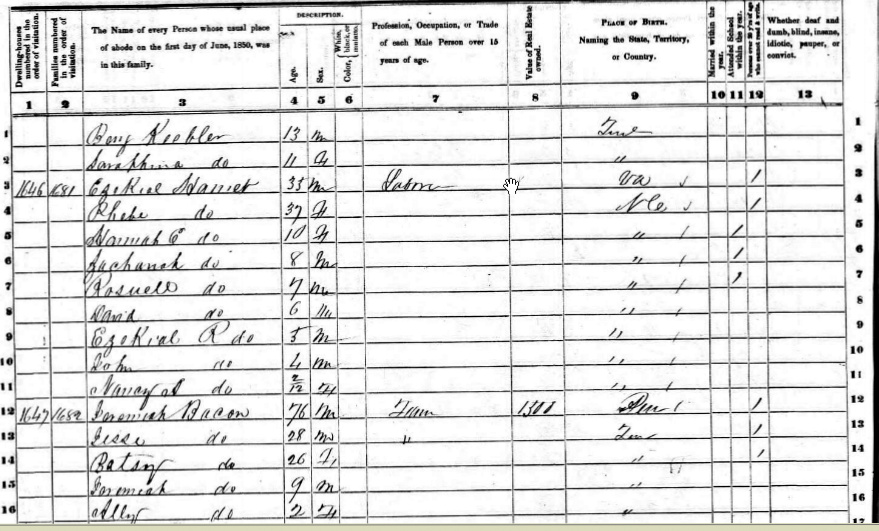 DESCRIPTION.
Dwelling-houses numbered in the order of visitation.
Families numbered in the order of visitation.
The Name of every Person whose usual place of abode on the first day of June, 1850, was in this family.
Age.
Sex.
Color, White, black, or mulatto.
Profession, Occupation, or Trade of each Male Person over 15 years of age.
Value of Real Estate owned.
PLACE OF BIRTH. Naming the State, Territory, or Country.
Married within the year.
Attended School within the year.
Persons over 20 y'rs of age who cannot read & write.
Whether deaf and dumb, blind, insane, idiotic, pauper, or convict.
1 2 3 4 5 6 7 8 9 10 11 12 13
1 Benj Keebler 13 m 1
2 Saraphina do 11 F " 2
3 1646 1681 Ezekial 35 m Labor Va 1 3
4 Phebe do 37 F N C 1 4
5 Hannah E do 10 F " 1 5
6 do 8 m " 1 6
7 Roswell do 7 m " 1 7
8 David do 6 m " 8
9 Ezekial R do 5 m " 9
10 John do 4 m " 10
11 Nancy A do 2/12 F " 11
12 1647 1682 Jeremiah Bacon 76 m Farm 1300 1 12
13 Jesse do 28 m " 1 13
14 Batsy do 26 F " 1 14
15 Jeremiah do 9 m " 15
16 Ally do 2 F " 16
17